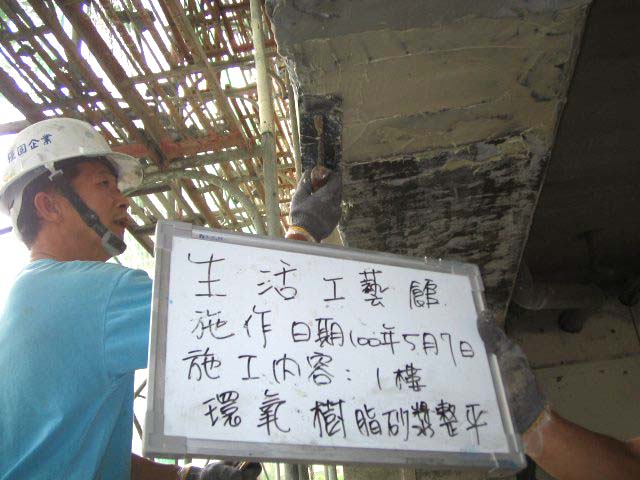 國企業
生活工藝館
施作日期100年5月7日
施工內容：1樓
環氧樹脂砂漿整平